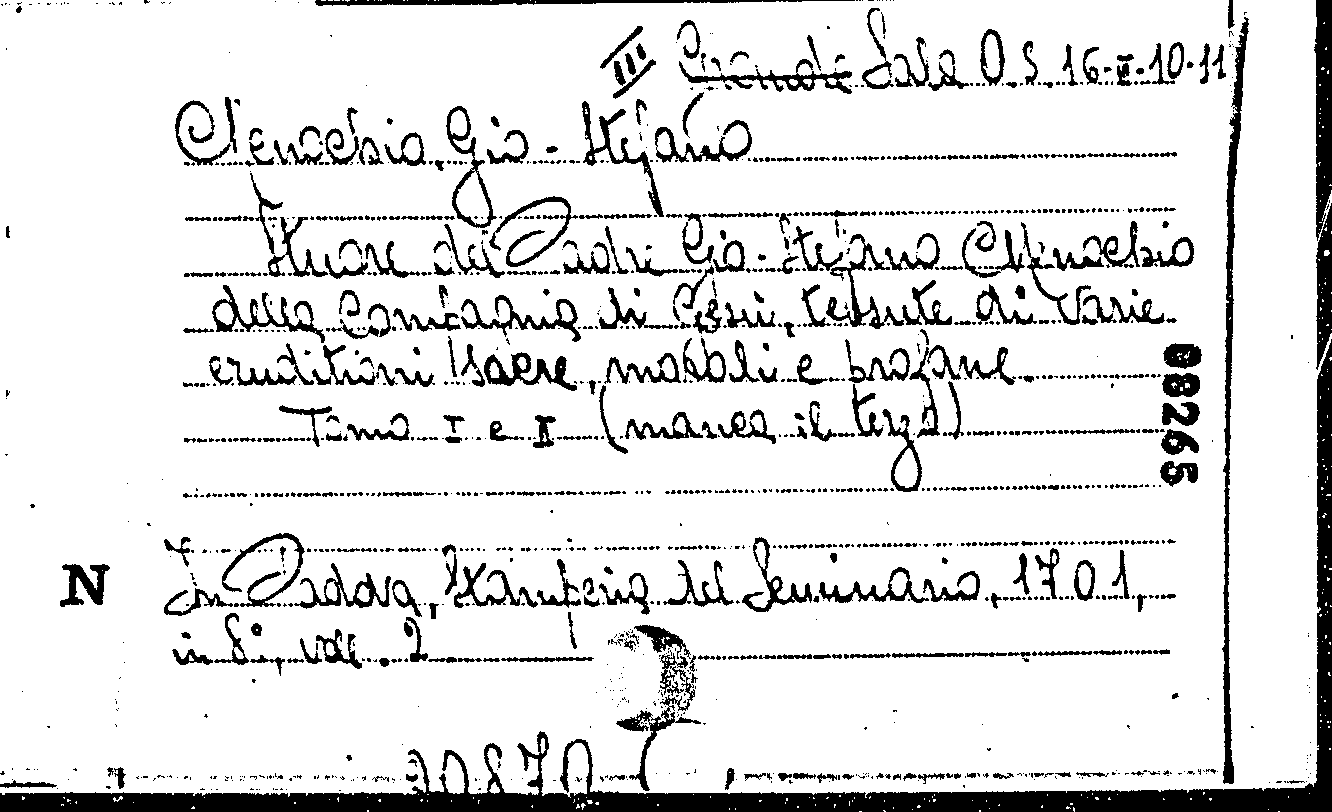 III Grande Sala O.S. 16-II-10-11
Menochio, Gio-Stefano
Stuore del Padre Gio-Stefano Menochio
della Compagnia di Gesù, tessute di varie
eruditioni sacre, morali e profane.
Tomo I e II (manca il terzo)
08265
N
In Padova, Stamperia del Seminario, 1701,
in 8º, voll. 2